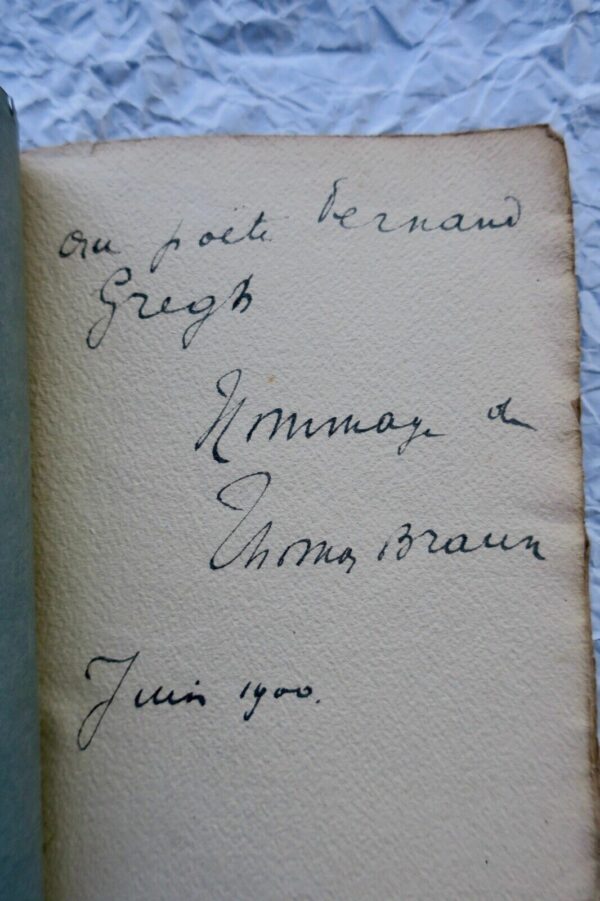 au poète Fernand
Gregh
Hommage de
Thomas Braun
Juin 1900.